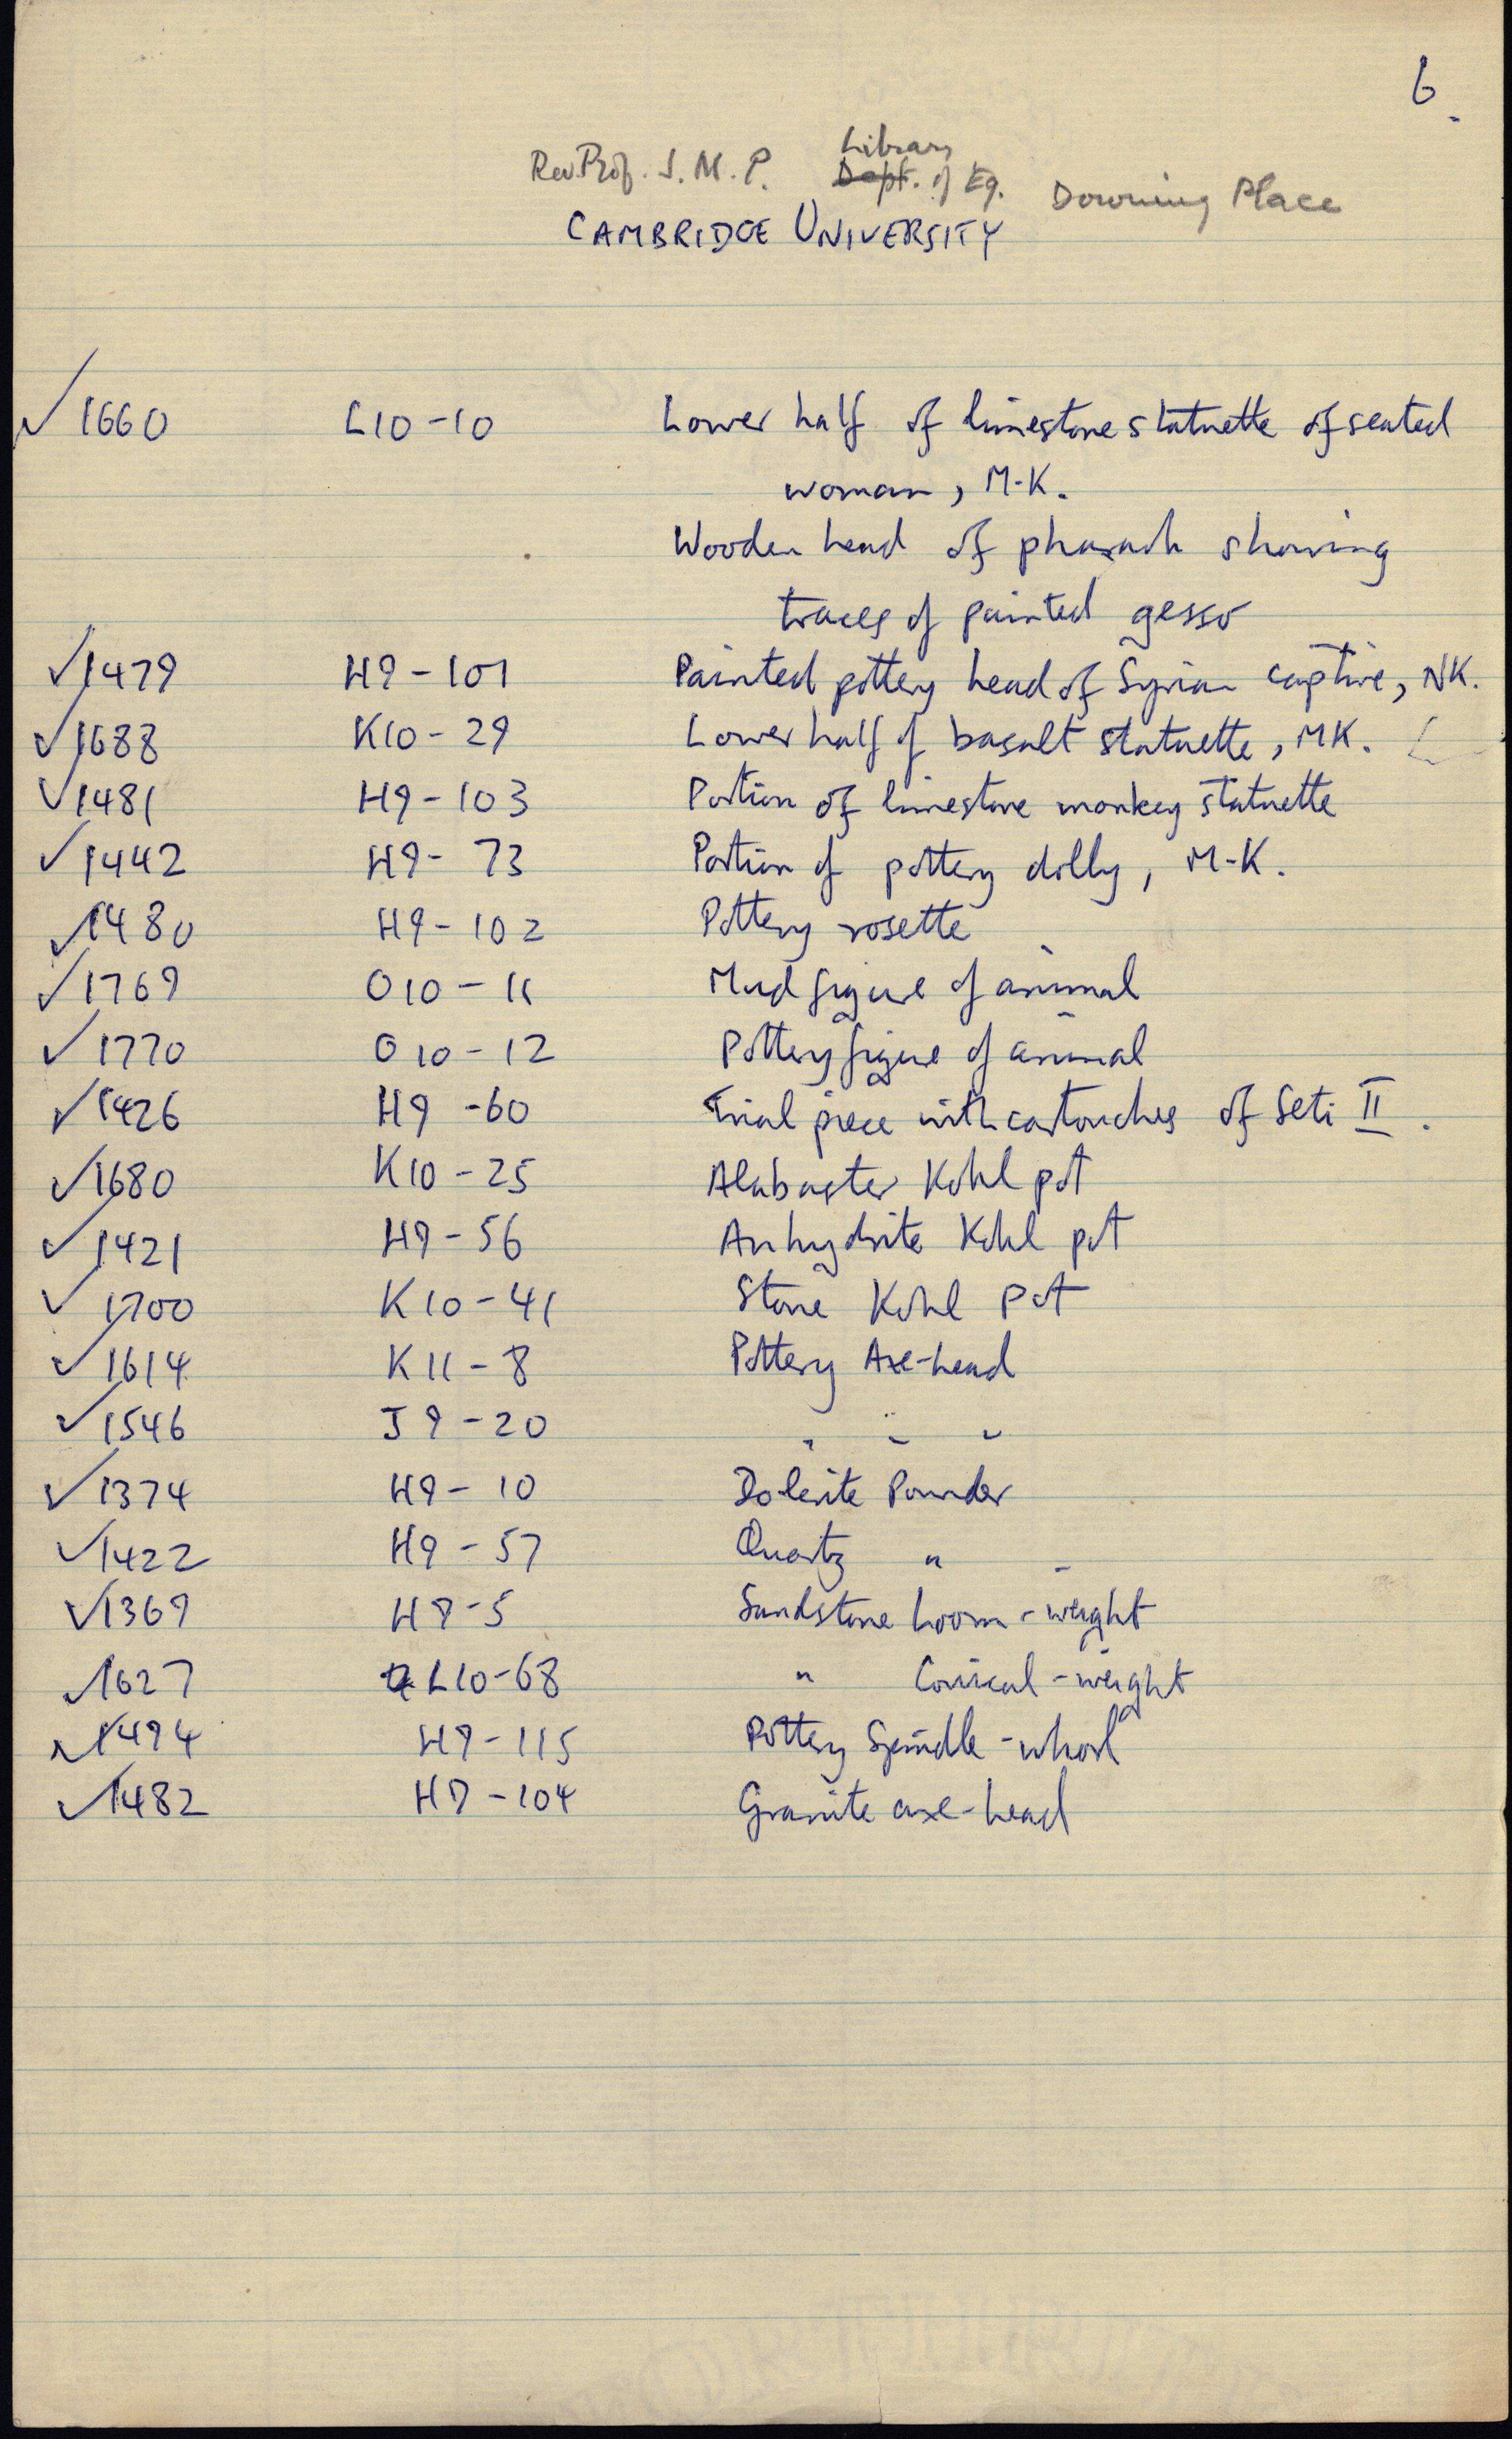 6.
Rev. Prof. J. M. P. Library Dept. of Eg. Downing Place
CAMBRIDGE UNIVERSITY
✓ 1660 L10-10 Lower half of limestone statuette of seated
woman, M-K.
Wooden head of pharaoh showing
traces of painted gesso
✓ 1479 H9-101 Painted pottery head of Syrian captive, NK.
✓ 1688 K10-29 Lower half of basalt statuette, MK.
✓ 1481 H9-103 Portion of limestone monkey statuette
✓ 1442 H9-73 Portion of pottery dolly, M-K.
✓ 1480 H9-102 Pottery rosette
✓ 1769 O10-11 Mud figure of animal
✓ 1770 O10-12 Pottery figure of animal
✓ 1426 H9-60 Trial piece with cartouches of Seti II.
✓ 1680 K10-25 Alabaster Kohl pot
✓ 1421 H9-56 Anhydrite Kohl pot
✓ 1700 K10-41 Stone Kohl Pot
✓ 1614 K11-8 Pottery Axe-head
✓ 1546 J9-20 " " "
✓ 1374 H9-10 Dolerite Pounder
✓ 1422 H9-57 Quartz "
✓ 1369 H9-5 Sandstone Loom-weight
✓ 1627 L10-68 " Conical-weight
✓ 1494 H9-115 Pottery Spindle-whorl
✓ 1482 H9-104 Granite axe-head